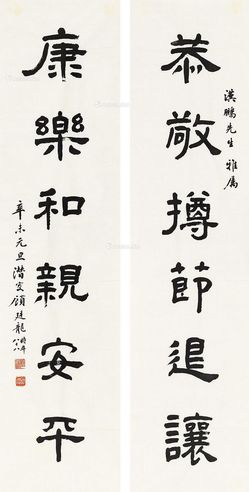 恭敬撙節退讓
漢鵬先生雅屬
康樂和親安平
辛未元旦潛叟顧廷龍時年八十八